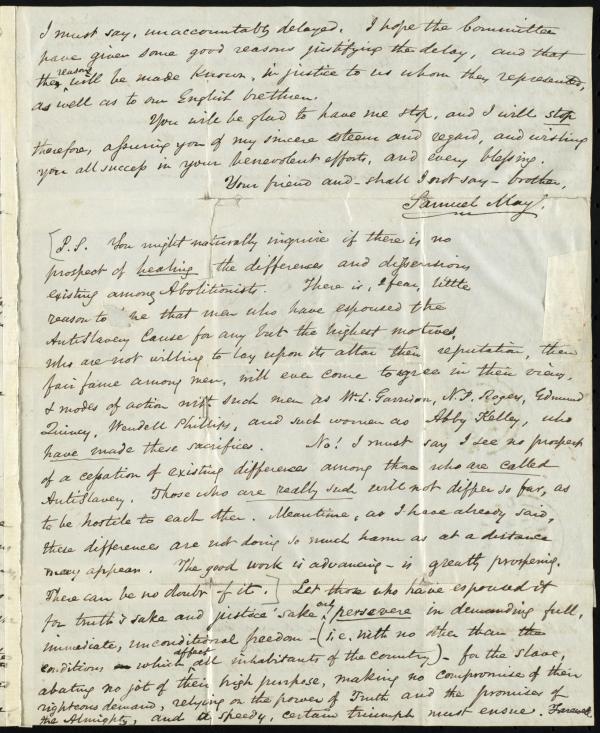 I must say, unaccountably delayed. I hope the Committee
have given some good reasons justifying the delay, and that
the reasons will be made known, in justice to us whom they represented,
as well as to our English brethren.
You will be glad to have me stop, and I will stop
therefore, assuring you of my sincere esteem and regard, and wishing
you all success in your benevolent efforts, and every blessing.
Your friend and - shall I not say - brother,
Samuel May.
[P.S. You might naturally inquire if there is no
prospect of healing the differences and dissensions
existing among Abolitionists. There is, I fear, little
reason to that men who have espoused the
AntiSlavery Cause for any but the highest motives,
who are not willing to lay upon its altar their reputation, their
fair fame among men, will ever come to agree in their views,
& modes of action with such men as Wm. L. Garrison, N. P. Rogers, Edmund
Quincy, Wendell Phillips, and such women as Abby Kelley, who
have made these sacrifices. No! I must say I see no prospect
of a cessation of existing differences among those who are called
AntiSlavery. Those who are really such will not differ so far, as
to be hostile to each other. Meantime, as I have already said,
these differences are not doing so much harm as at a distance
may appear. The good work is advancing - is greatly prospering.
There can be no doubt of it.] Let those who have espoused it
for truth's sake and justice' sake only persevere in demanding full,
immediate, unconditional freedom - (i.e. with no other than the
conditions which affect all inhabitants of the country) - for the slave,
abating no jot of their high purpose, making no compromise of their
righteous demand, relying on the power of Truth and the promises of
the Almighty, and a speedy, certain triumph must ensue. Farewell.